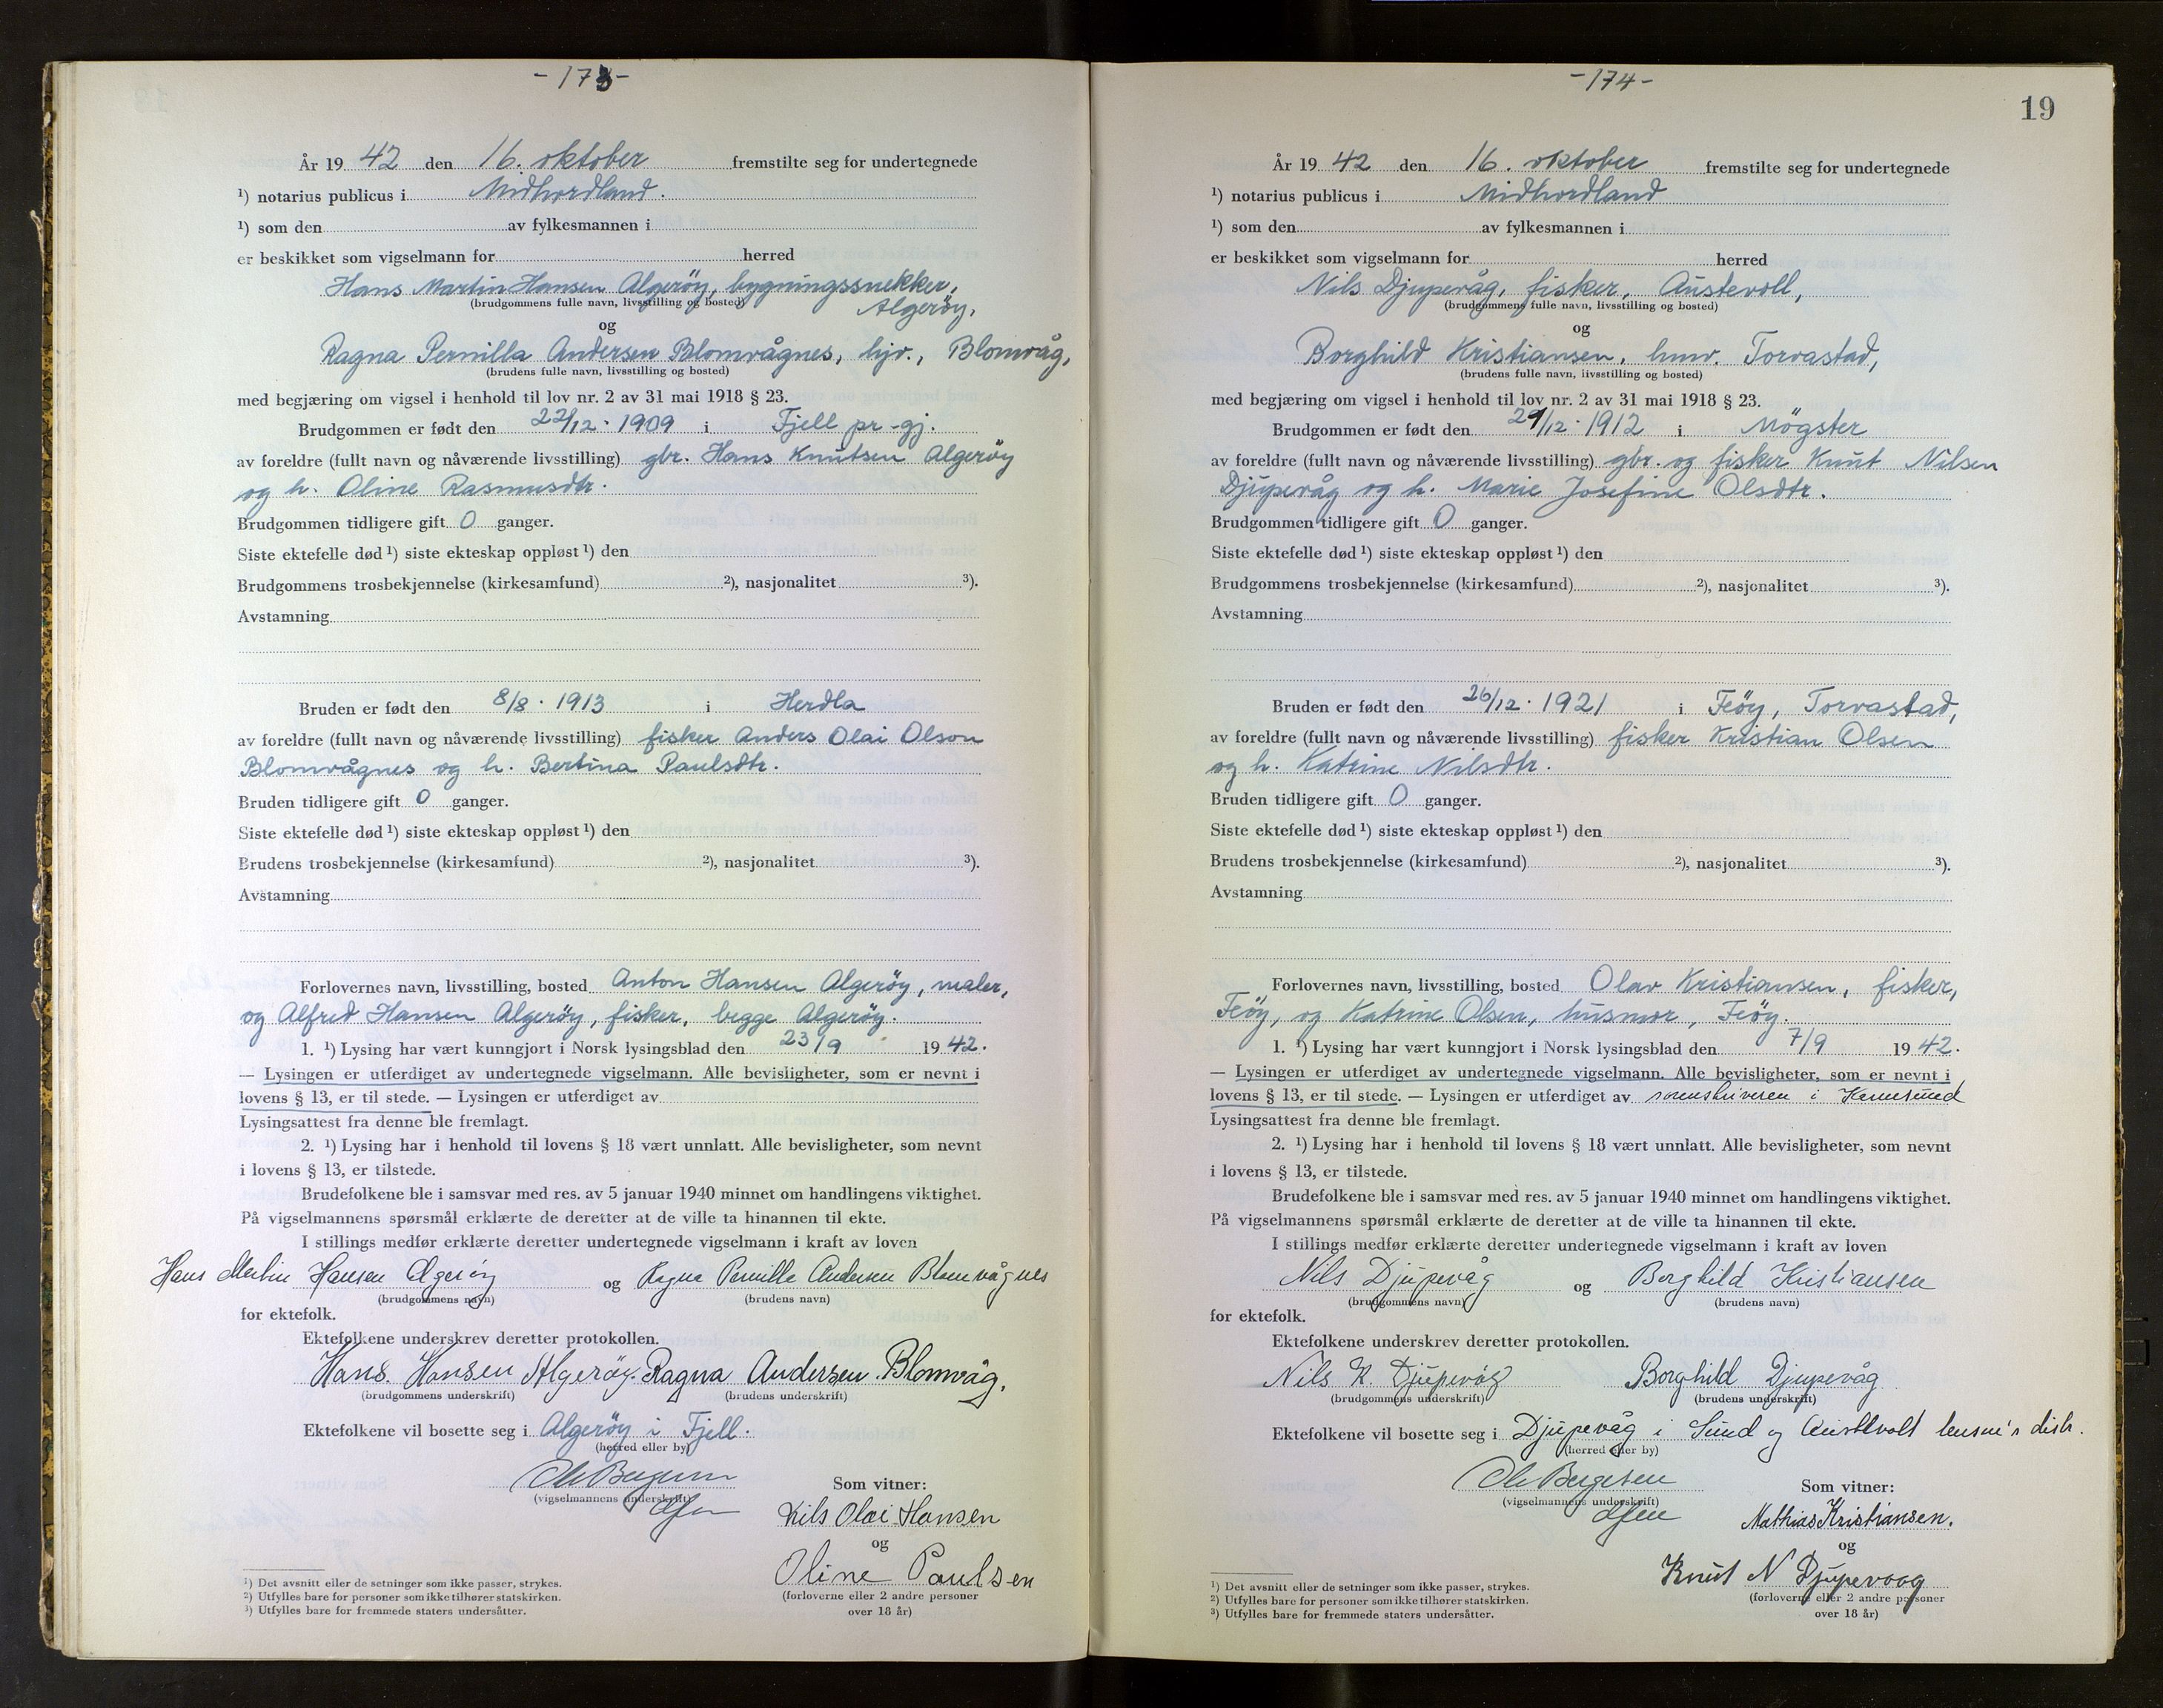 - 173 -
År 19 42 den 16. oktober fremstilte seg for undertegnede
¹) notarius publicus i Midhordland.
¹) som den av fylkesmannen i
er beskikket som vigselmann for herred
Hans Martin Hansen Algeröy, bygningssnekker,
(brudgommens fulle navn, livsstilling og bosted)
Algeröy,
og
Ragna Pernilla Andersen Blomvågnes, hjv., Blomvåg,
(brudens fulle navn, livsstilling og bosted)
med begjæring om vigsel i henhold til lov nr. 2 av 31 mai 1918 § 23.
Brudgommen er født den 22/12. 1909 i Fjell pr-gj.
av foreldre (fullt navn og nåværende livsstilling) gbr. Hans Knutsen Algeröy
og h. Oline Rasmusdtr.
Brudgommen tidligere gift 0 ganger.
Siste ektefelle død ¹) siste ekteskap oppløst ¹) den
Brudgommens trosbekjennelse (kirkesamfund) ²), nasjonalitet ³).
Avstamning
Bruden er født den 8/8. 1913 i Herdla
av foreldre (fullt navn og nåværende livsstilling) fisker Anders Olai Olson
Blomvågnes og h. Bertina Paulsdtr.
Bruden tidligere gift 0 ganger.
Siste ektefelle død ¹) siste ekteskap oppløst ¹) den
Brudens trosbekjennelse (kirkesamfund) ²), nasjonalitet ³).
Avstamning
Forlovernes navn, livsstilling, bosted Anton Hansen Algeröy, maler,
og Alfred Hansen Algeröy, fisker, begge Algeröy.
1. ¹) Lysing har vært kunngjort i Norsk lysingsblad den 23/9 19 42.
— Lysingen er utferdiget av undertegnede vigselmann. Alle bevisligheter, som er nevnt i
lovens § 13, er til stede. — Lysingen er utferdiget av
Lysingsattest fra denne ble fremlagt.
2. ¹) Lysing har i henhold til lovens § 18 vært unnlatt. Alle bevisligheter, som nevnt
i lovens § 13, er tilstede.
Brudefolkene ble i samsvar med res. av 5 januar 1940 minnet om handlingens viktighet.
På vigselmannens spørsmål erklærte de deretter at de ville ta hinannen til ekte.
I stillings medfør erklærte deretter undertegnede vigselmann i kraft av loven
Hans Martin Hansen Algeröy og Ragna Pernilla Andersen Blomvågnes
(brudgommens navn) (brudens navn)
for ektefolk.
Ektefolkene underskrev deretter protokollen.
Hans. Hansen Algeröy. Ragna Andersen Blomvåg.
(brudgommens underskrift) (brudens underskrift)
Ektefolkene vil bosette seg i Algeröy i Fjell.
(herred eller by)
Ole Bergesen
(vigselmannens underskrift)
Som vitner:
Nils Olai Hansen
og
Oline Paulsen
(forloverne eller 2 andre personer
over 18 år)
¹) Det avsnitt eller de setninger som ikke passer, strykes.
²) Utfylles bare for personer som ikke tilhører statskirken.
³) Utfylles bare for fremmede staters undersåtter.
- 174 -
19
År 19 42 den 16. oktober fremstilte seg for undertegnede
¹) notarius publicus i Midhordland
¹) som den av fylkesmannen i
er beskikket som vigselmann for herred
Nils Djupevåg, fisker, Austevoll,
(brudgommens fulle navn, livsstilling og bosted)
og
Borghild Kristiansen, hmv. Torvastad,
(brudens fulle navn, livsstilling og bosted)
med begjæring om vigsel i henhold til lov nr. 2 av 31 mai 1918 § 23.
Brudgommen er født den /12. 1912 i Mögster
av foreldre (fullt navn og nåværende livsstilling) gbr. og fisker Knut Nilsen
Djupevåg og h. Marie Josefine Olsdtr.
Brudgommen tidligere gift 0 ganger.
Siste ektefelle død ¹) siste ekteskap oppløst ¹) den
Brudgommens trosbekjennelse (kirkesamfund) ²), nasjonalitet ³).
Avstamning
Bruden er født den 26/12. 1921 i Feöy, Torvastad,
av foreldre (fullt navn og nåværende livsstilling) fisker Kristian Olsen
og h. Katrine Nilsdtr.
Bruden tidligere gift 0 ganger.
Siste ektefelle død ¹) siste ekteskap oppløst ¹) den
Brudens trosbekjennelse (kirkesamfund) ²), nasjonalitet ³).
Avstamning
Forlovernes navn, livsstilling, bosted Olav Kristiansen, fisker,
Feöy, og Katrine Olsen, husmor, Feöy.
1. ¹) Lysing har vært kunngjort i Norsk lysingsblad den 7/9 19 42.
— Lysingen er utferdiget av undertegnede vigselmann. Alle bevisligheter, som er nevnt i
lovens § 13, er til stede. — Lysingen er utferdiget av sorenskriveren i Karmsund
Lysingsattest fra denne ble fremlagt.
2. ¹) Lysing har i henhold til lovens § 18 vært unnlatt. Alle bevisligheter, som nevnt
i lovens § 13, er tilstede.
Brudefolkene ble i samsvar med res. av 5 januar 1940 minnet om handlingens viktighet.
På vigselmannens spørsmål erklærte de deretter at de ville ta hinannen til ekte.
I stillings medfør erklærte deretter undertegnede vigselmann i kraft av loven
Nils Djupevåg og Borghild Kristiansen
(brudgommens navn) (brudens navn)
for ektefolk.
Ektefolkene underskrev deretter protokollen.
Nils K. Djupevåg Borghild Djupevåg
(brudgommens underskrift) (brudens underskrift)
Ektefolkene vil bosette seg i Djupevåg i Sund og Austevoll lensm's distr.
(herred eller by)
Ole Bergesen
(vigselmannens underskrift)
Som vitner:
Mathias Kristiansen.
og
Knut N Djupevaag
(forloverne eller 2 andre personer
over 18 år)
¹) Det avsnitt eller de setninger som ikke passer, strykes.
²) Utfylles bare for personer som ikke tilhører statskirken.
³) Utfylles bare for fremmede staters undersåtter.